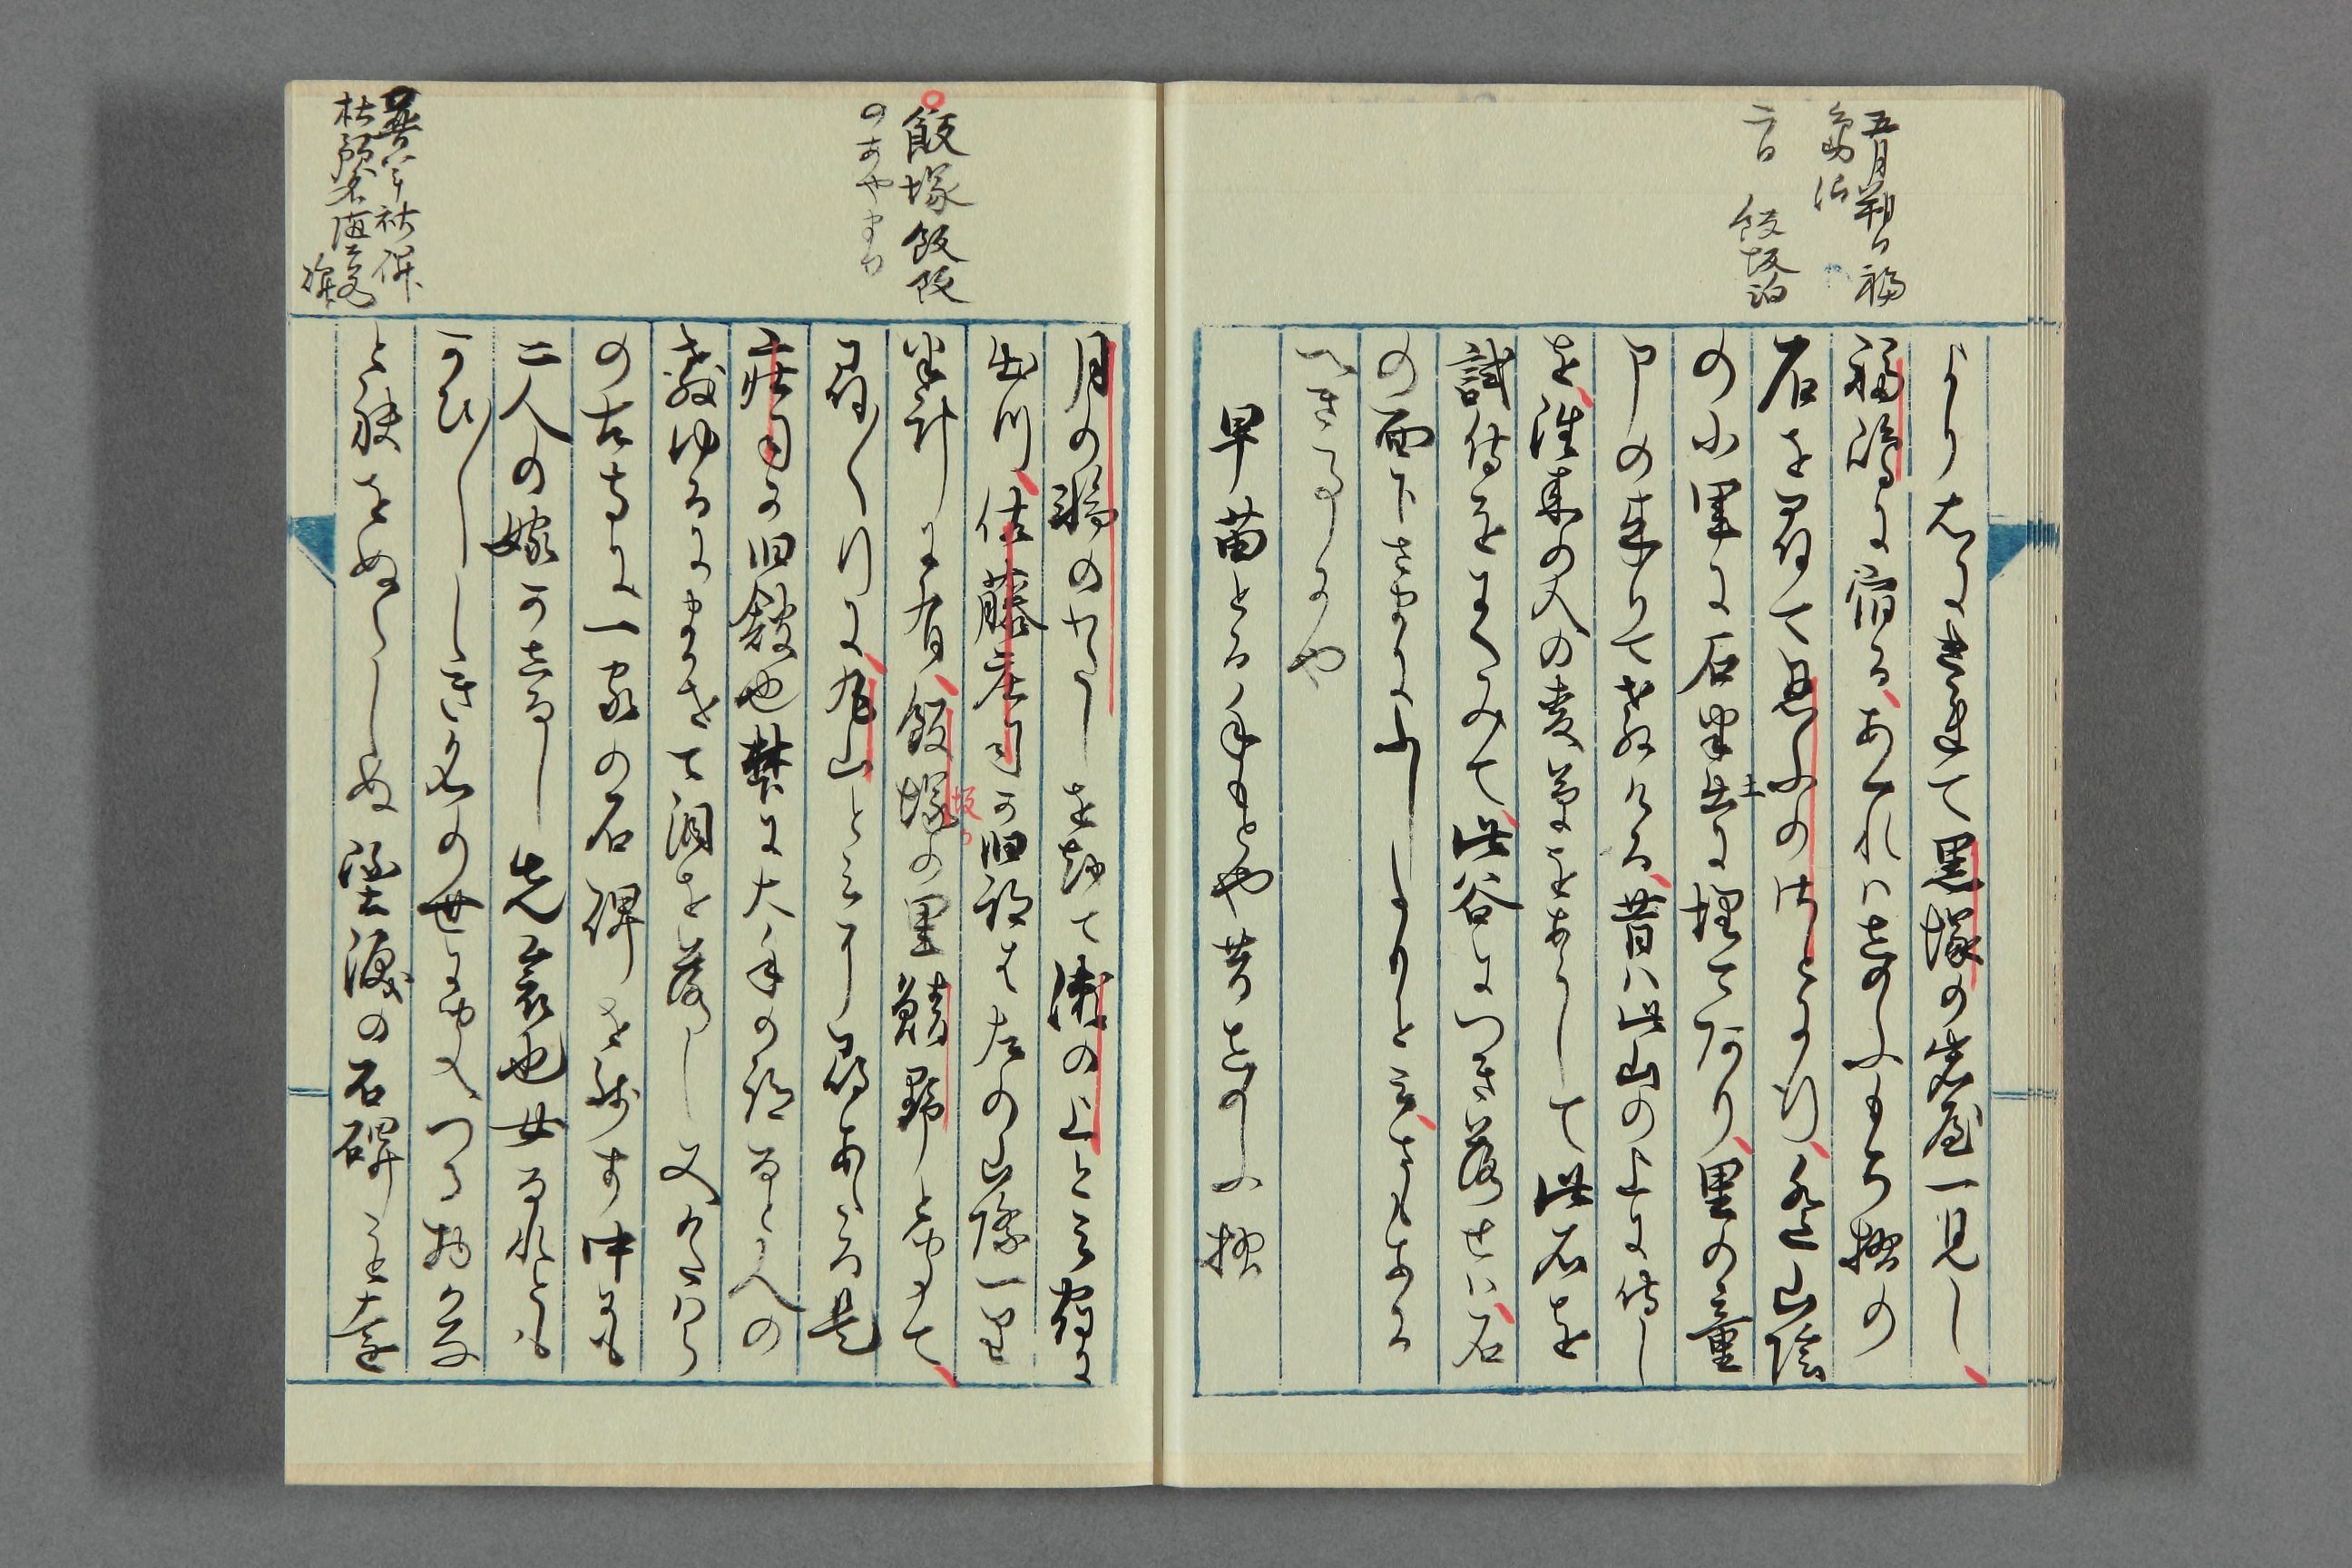 五月朔日福
島泊
二日 飯坂泊
より右にきれて黒塚の岩屋一見し
福島に宿るあくれはしのふもち摺の
石を尋て忍ふの里に行遥山陰
の小里に石半土に埋てあり里の童
への来りて教ける昔は此山の上に侍し
を往来の人の麦草をあらして此石を
試侍をにくみて此谷につき落せは石
の面下さまにふしたりと云さもある
へき事にや
早苗とる手もとや昔しのふ摺
飯塚飯坂
のあやまり
月の輪のわたしを越て瀬の上と云宿に
出つ佐藤庄司か旧跡は左の山際一里
半計に有飯塚の里鯖野ときゝて
坂カ
尋ね〳〵行に丸山と云に尋あたる是
庄司か旧館也梺に大手の跡なと人の
教ゆるにまかせて泪を落し又かたはら
の古寺に一家の石碑を残す中にも
二人の嫁かしるし先哀也女なれとも
かひ〳〵しき名の世に聞えつる物かな
と袂をぬらしぬ墮涙の石碑も遠